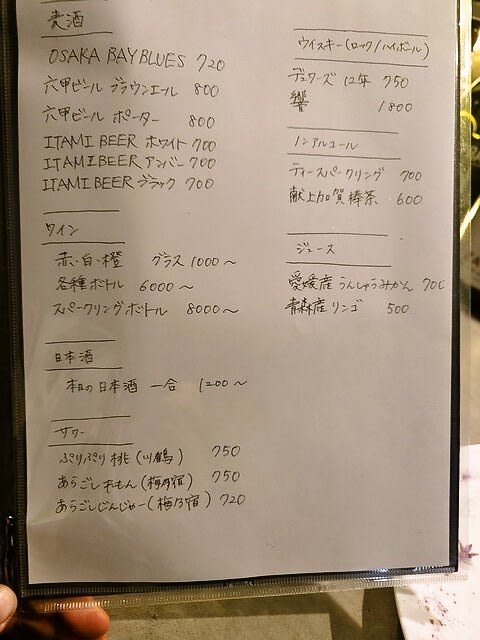 麦酒
OSAKA BAY BLUES 720
六甲ビール ブラウンエール 800
六甲ビール ポーター 800
ITAMI BEER ホワイト 700
ITAMI BEER アンバー 700
ITAMI BEER ブラック 700
ワイン
赤・白・橙 グラス 1000～
各種ボトル 6000～
スパークリングボトル 8000～
日本酒
本日の日本酒 一合 1200～
サワー
ぷりぷり桃(川鶴) 750
あらごしれもん(梅乃宿) 750
あらごしじんじゃー(梅乃宿) 720
ウイスキー(ロック/ハイボール)
デュワーズ 12年 750
響 1800
ノンアルコール
ティースパークリング 700
献上加賀棒茶 600
ジュース
愛媛産 うんしゅうみかん 700
青森産 リンゴ 500